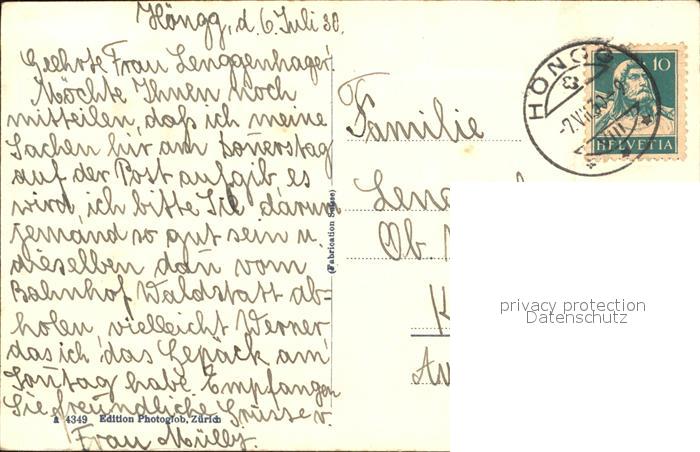 Höngg, d. 6. Juli 30.
Geehrte Frau Lenggenhager!
Möchte Ihnen noch
mitteilen, daß ich meine
Sachen hir am Donerstag
auf der Post aufgib, es
wird, ich bitte Sie darum
Jemand so gut sein u.
dieselben dan vom
Bahnhof Waldstatt ab-
holen vielleicht Werner
das ich das Gepäck am
Sontag habe. Empfangen
Sie freundliche Grüsse v.
Frau Mülly.
a 4349 Edition Photoglob, Zürich
(Fabrication Suisse)
Familie
Ob.
HÖNGG
10
HELVETIA
privacy protection
Datenschutz